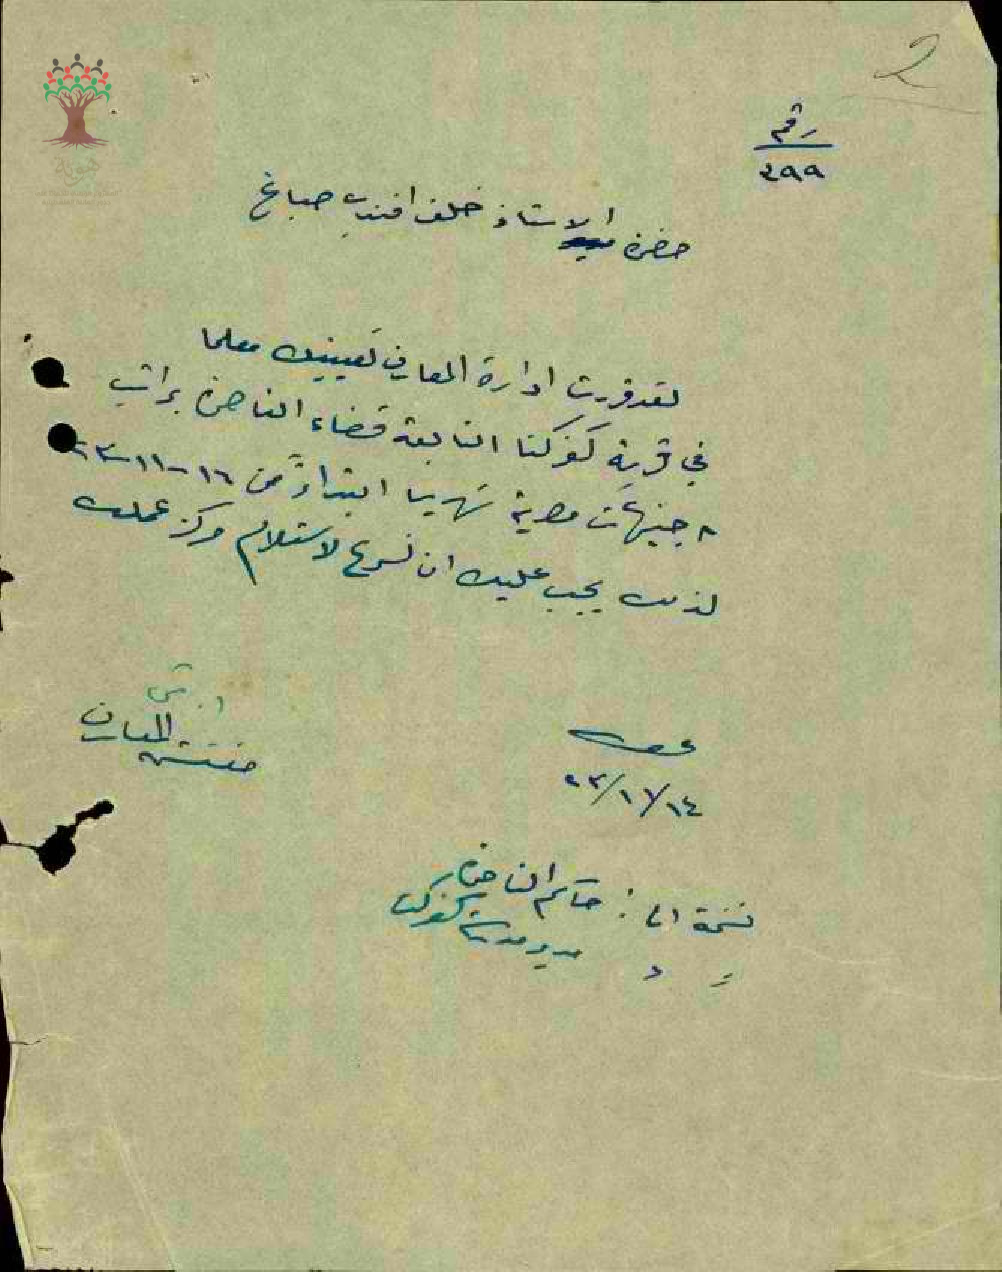 2
رقم
٢٩٩
حضرة الاستاذ خلف افندي صباغ
لقد قررت ادارة المعارف تعيينك معلما
في قرية كفركنا التابعة قضاء الناصرة براتب
٨ جنيهات مصرية شهريا ابتداءً من ١٦-١١-٢٣
لذلك يجب عليك ان تسرع لاستلام مركز عملك
مفتش المعارف
عكه
١٤/١١/٢٣
نسخة الى: حاكم الناصرة
مدير مدرسة كفركنا